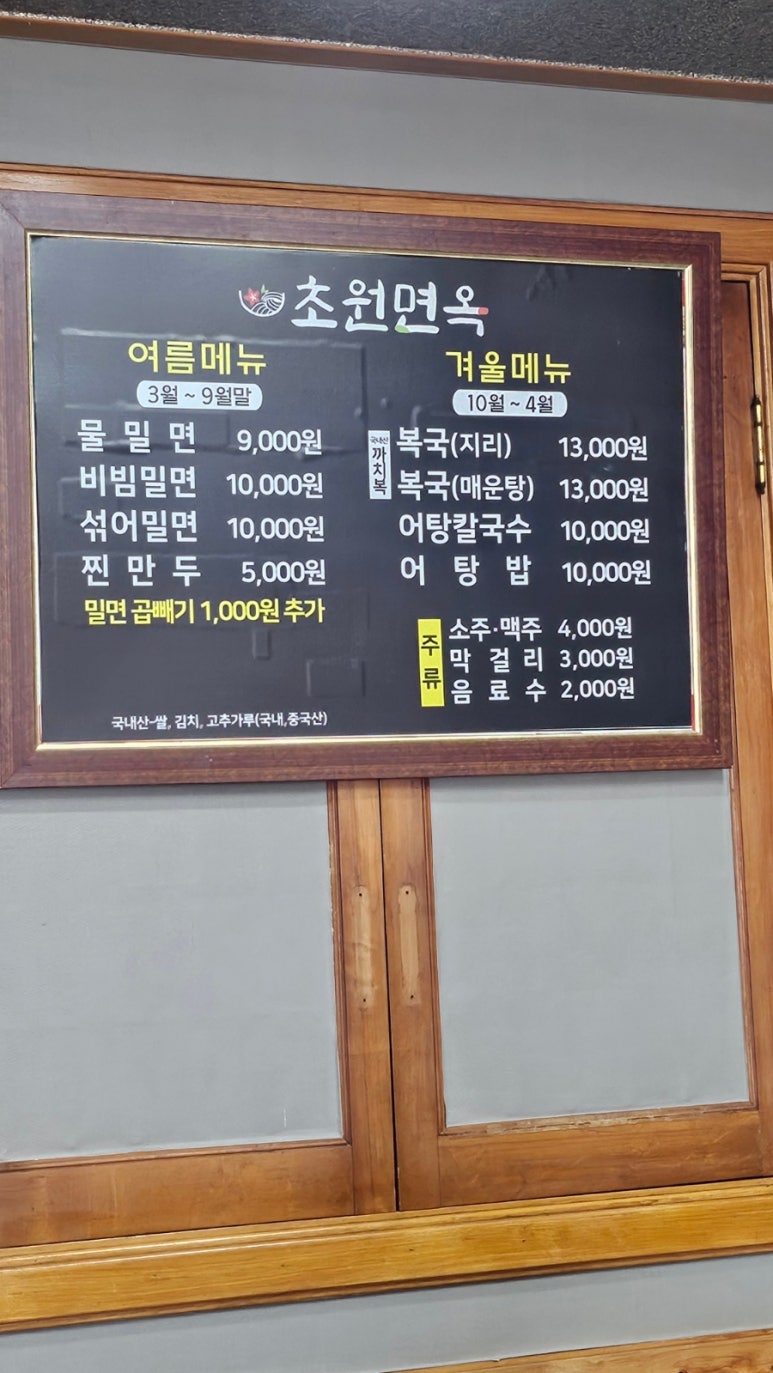 초원면옥
여름메뉴
3월 ~ 9월말
물 밀 면 9,000원
비빔밀면 10,000원
섞어밀면 10,000원
찐 만 두 5,000원
밀면 곱빼기 1,000원 추가
국내산-쌀, 김치, 고추가루(국내,중국산)
겨울메뉴
10월 ~ 4월
국내산 까치복
복국(지리) 13,000원
복국(매운탕) 13,000원
어탕칼국수 10,000원
어 탕 밥 10,000원
주류
소주·맥주 4,000원
막 걸 리 3,000원
음 료 수 2,000원